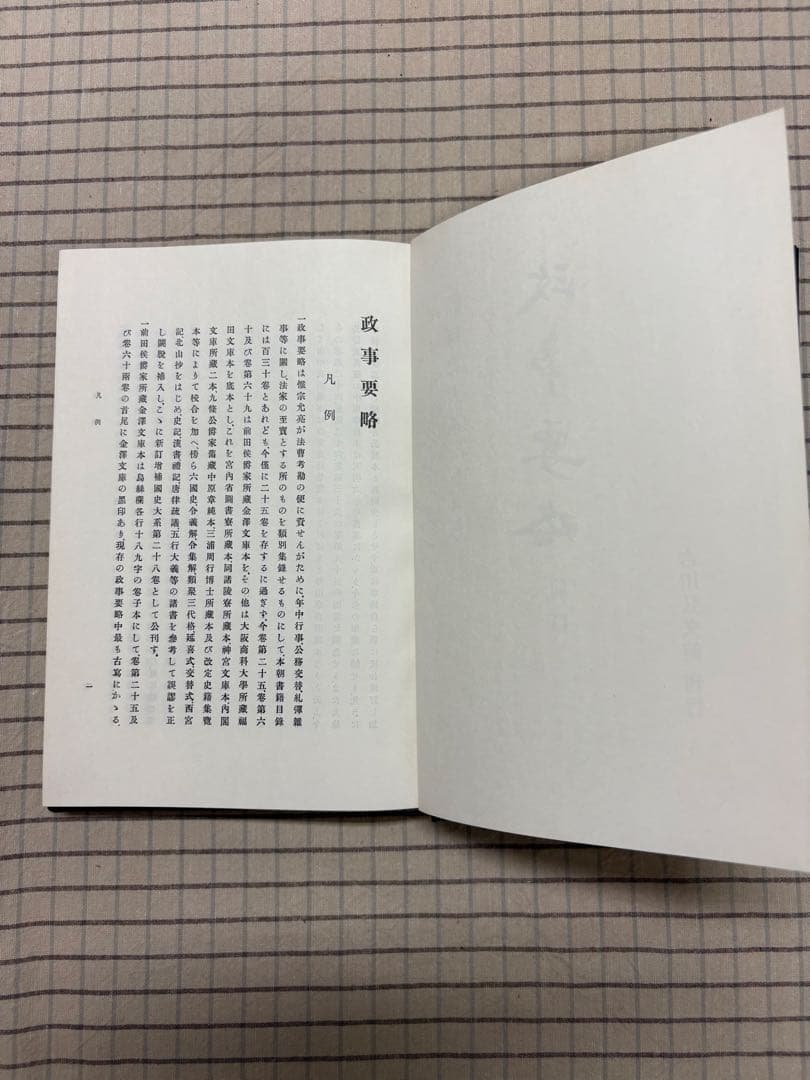 政事要略
凡例
一政事要略は惟宗允亮が法曹考勘の便に資せんがために、年中行事、公務交替、糺彈雜
事等に關し、法家の至寶とする所のものを類別集錄せるものにして、本朝書籍目錄
には百三十卷とあれども、今僅に二十五卷を存するに過ぎず、今卷第二十五、卷第六
十及び卷第六十九は前田侯爵家所藏金澤文庫本を、その他は大阪商科大學所藏福
田文庫本を底本とし、これを宮内省圖書寮所藏本、同諸陵寮所藏本、神宮文庫本、内閣
文庫所藏二本、九條公爵家舊藏中原章純本、三浦周行博士所藏本及び改定史籍集覽
本等によりて校合を加へ、傍ら六國史、令義解、令集解、類聚三代格、延喜式、交替式、西宮
記、北山抄をはじめ、史記、漢書、禮記、唐律疏議、五行大義等の諸書を參考して誤謬を正
し闕脫を補入し、こゝに新訂增補國史大系第二十八卷として公刊す。
一前田侯爵家所藏金澤文庫本は烏絲欄各行十八九字の卷子本にして、卷第二十五及
び卷六十兩卷の首尾に金澤文庫の墨印あり、現存の政事要略中最も古寫にかゝる、
凡例
一